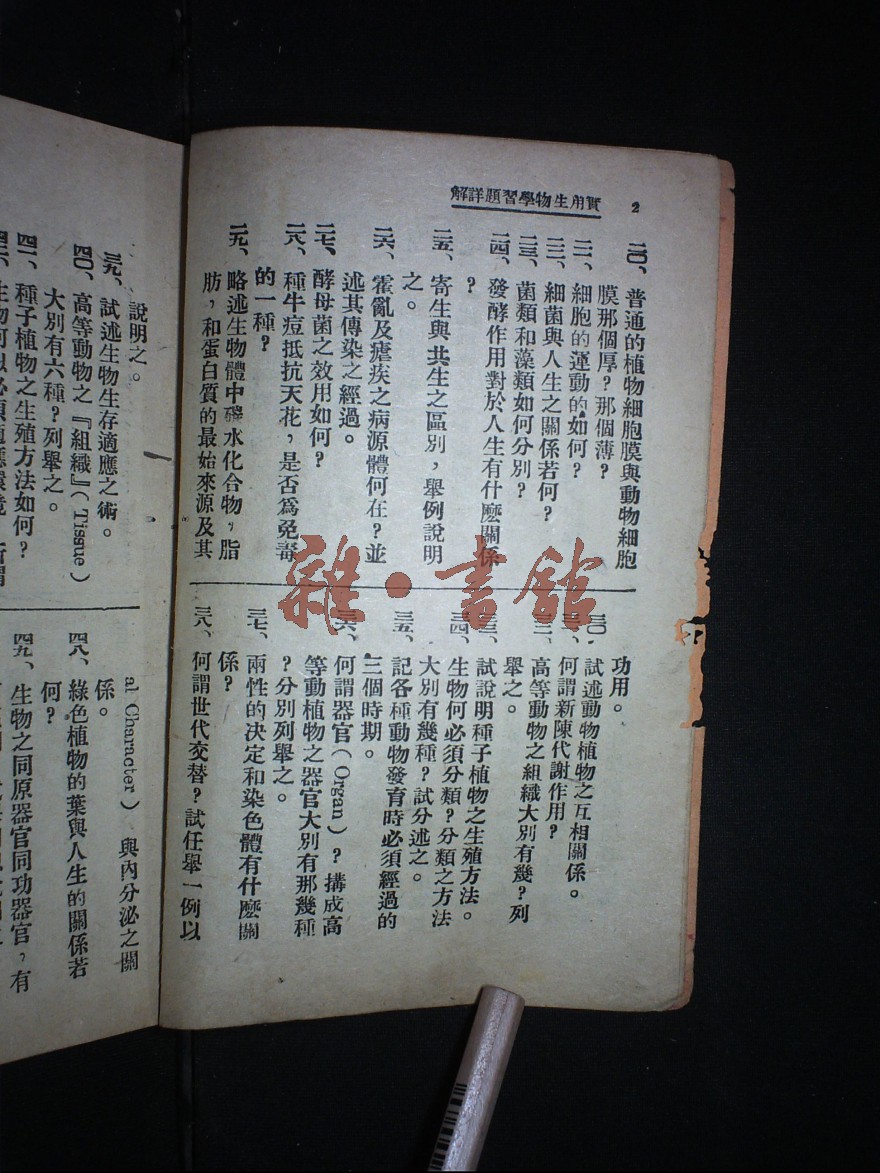 2
實用生物學習題詳解
二〇、普通的植物細胞膜與動物細胞
膜那個厚？那個薄？
二一、細胞的運動的如何？
二二、細菌與人生之關係若何？
二三、菌類和藻類如何分別？
二四、發酵作用對於人生有什麽關係
？
二五、寄生與共生之區別，舉例說明
之。
二六、霍亂及瘧疾之病源體何在？並
述其傳染之經過。
二七、酵母菌之效用如何？
二八、種牛痘抵抗天花，是否爲免毒
的一種？
二九、略述生物體中礙水化合物，脂
肪，和蛋白質的最始來源及其
功用。
三〇、試述動物植物之互相關係。
三一、何謂新陳代謝作用？
三二、高等動物之組織大別有幾？列
舉之。
三三、試說明種子植物之生殖方法。
三四、生物何必須分類？分類之方法
大別有幾種？試分述之。
三五、記各種動物發育時必須經過的
三個時期。
三六、何謂器官（Organ）？搆成高
等動植物之器官大別有那幾種
？分別列舉之。
三七、兩性的决定和染色體有什麽關
係？
三八、何謂世代交替？試任舉一例以
說明之。
三九、試述生物生存適應之術。
四〇、高等動物之『組織』（Tissue）
大別有六種？列舉之。
四一、種子植物之生殖方法如何？
al Character） 與內分泌之關
係。
四八、綠色植物的葉與人生的關係若
何？
四九、生物之同原器官同功器官，有
雜·書館